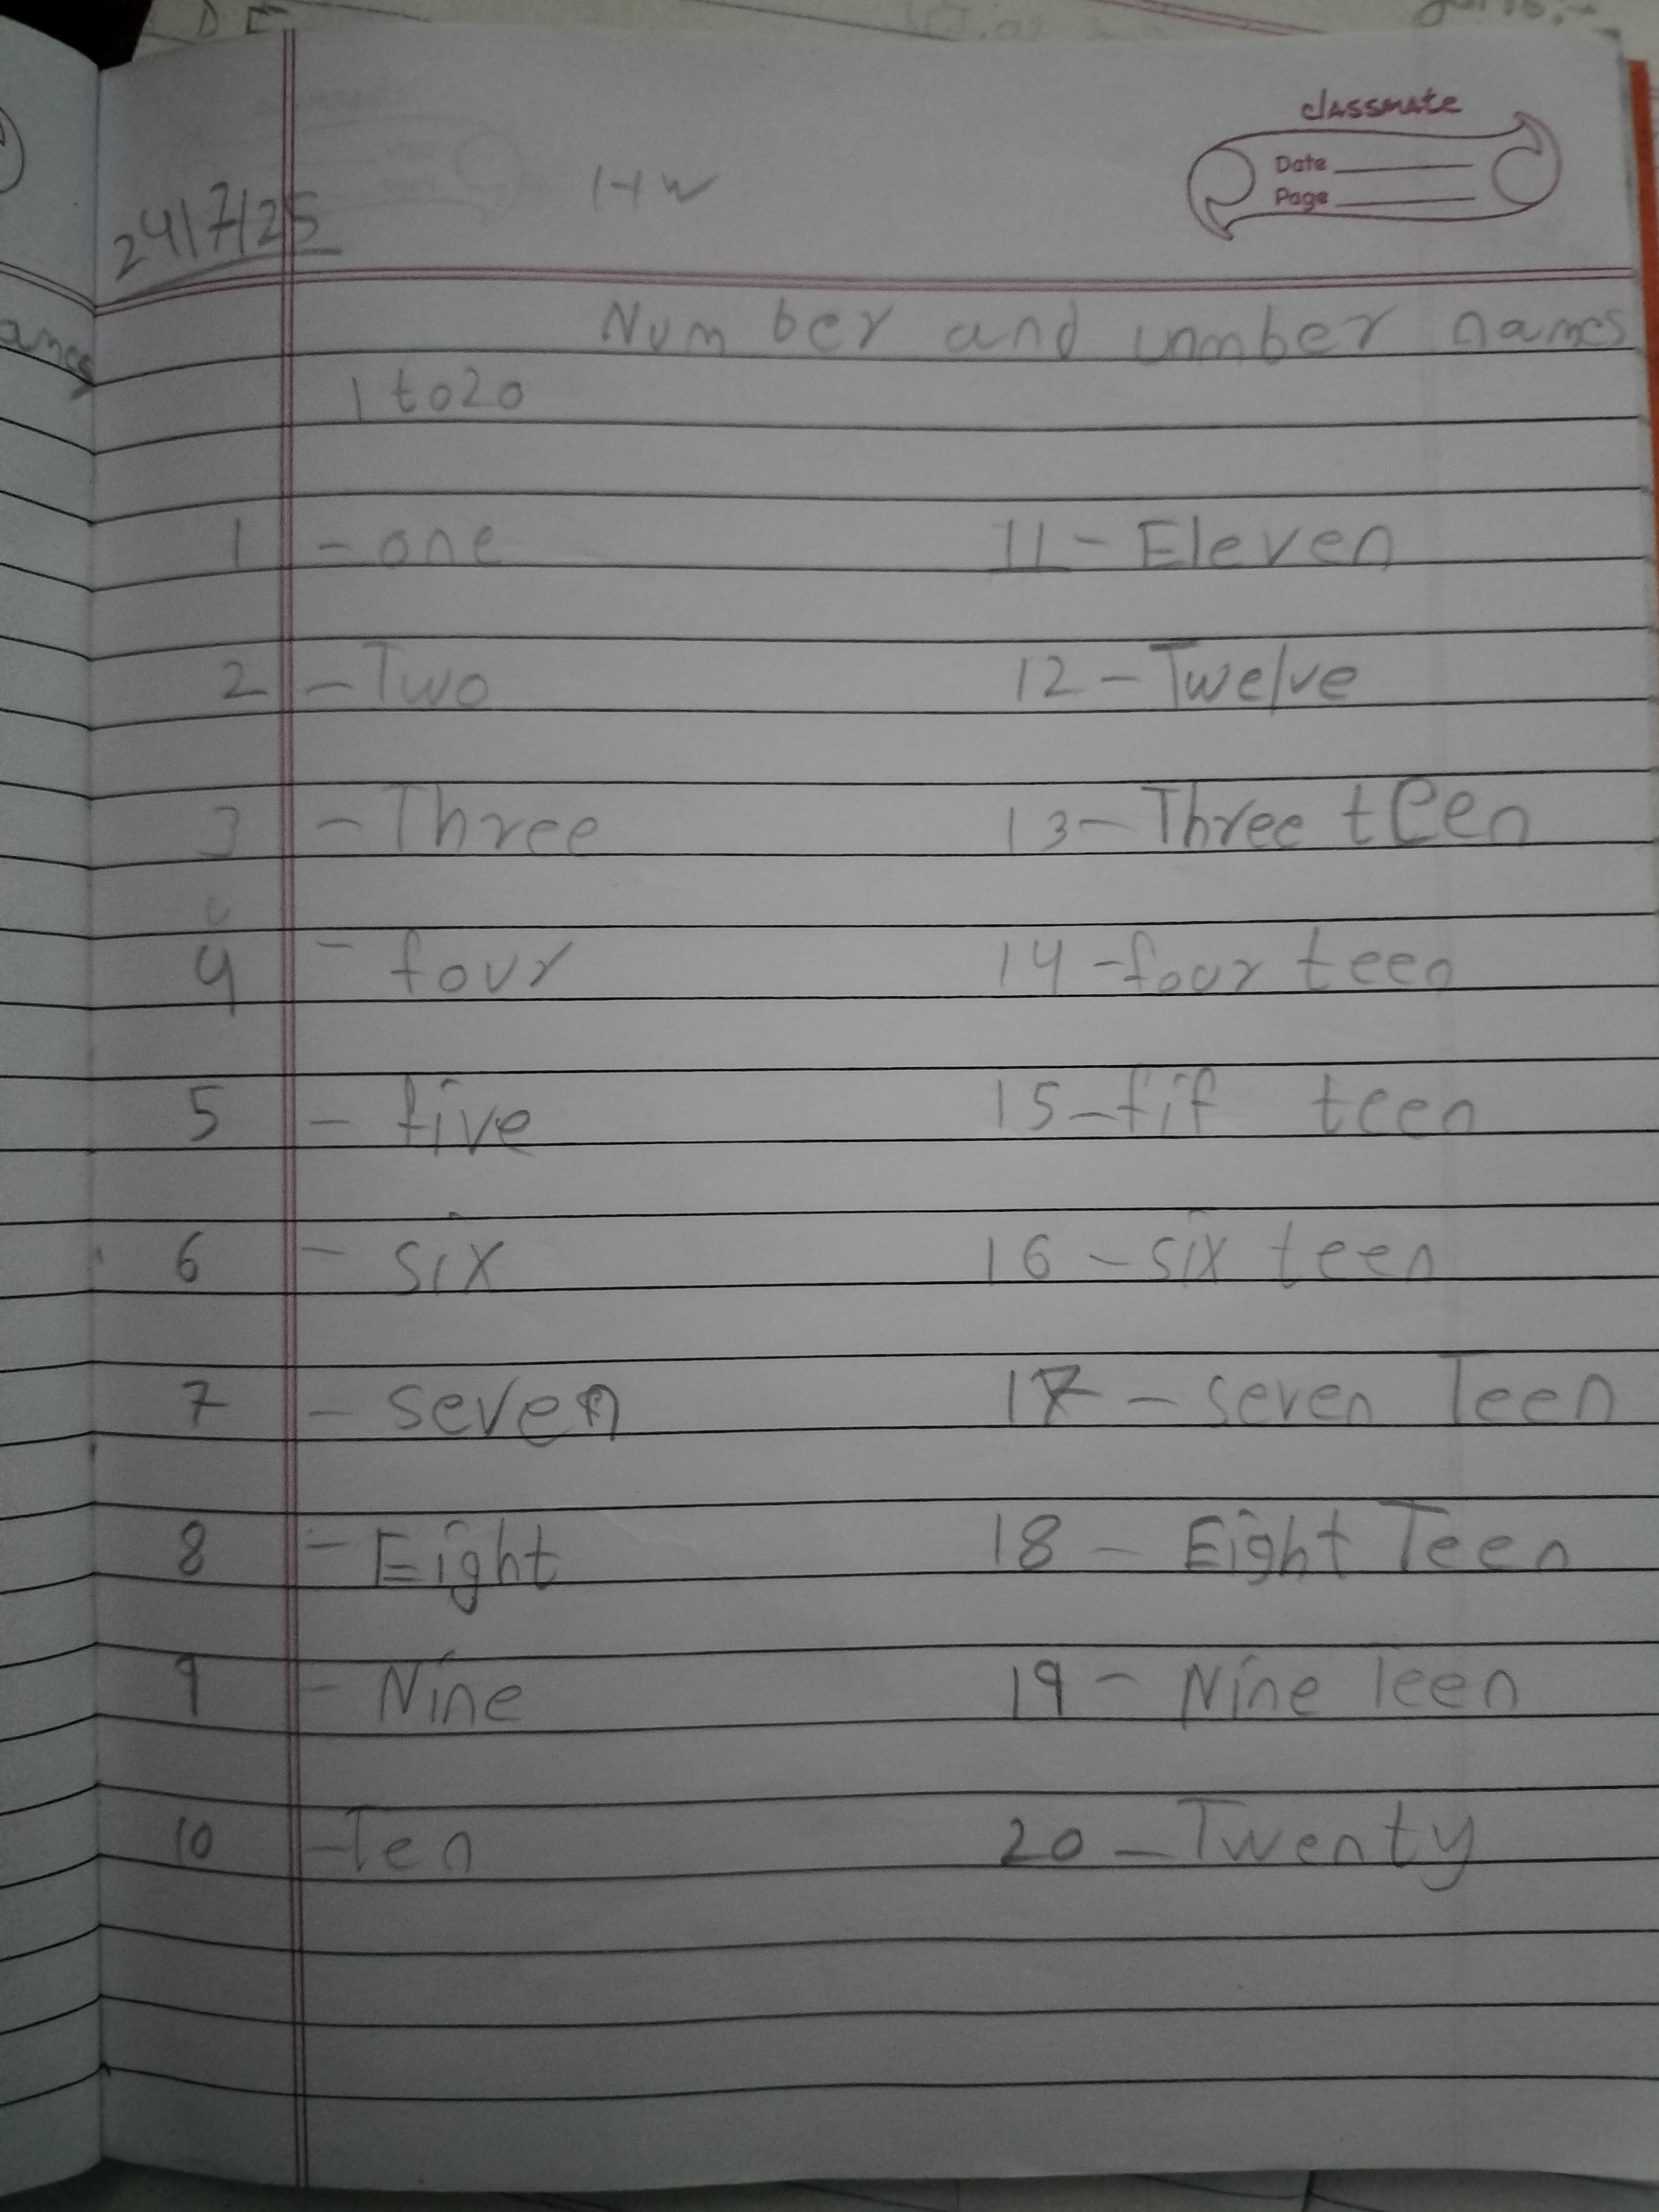 classmate
Date
Page
HW
24/7/25
Number and unmber names
1 to 20
1 - one 11 - Eleven
2 - Two 12 - Twelve
3 - Three 13 - Three teen
4 - four 14 - four teen
5 - five 15 - fif teen
6 - six 16 - six teen
7 - seven 17 - seven Teen
8 - Eight 18 - Eight Teen
9 - Nine 19 - Nine Teen
10 - Ten 20 - Twenty